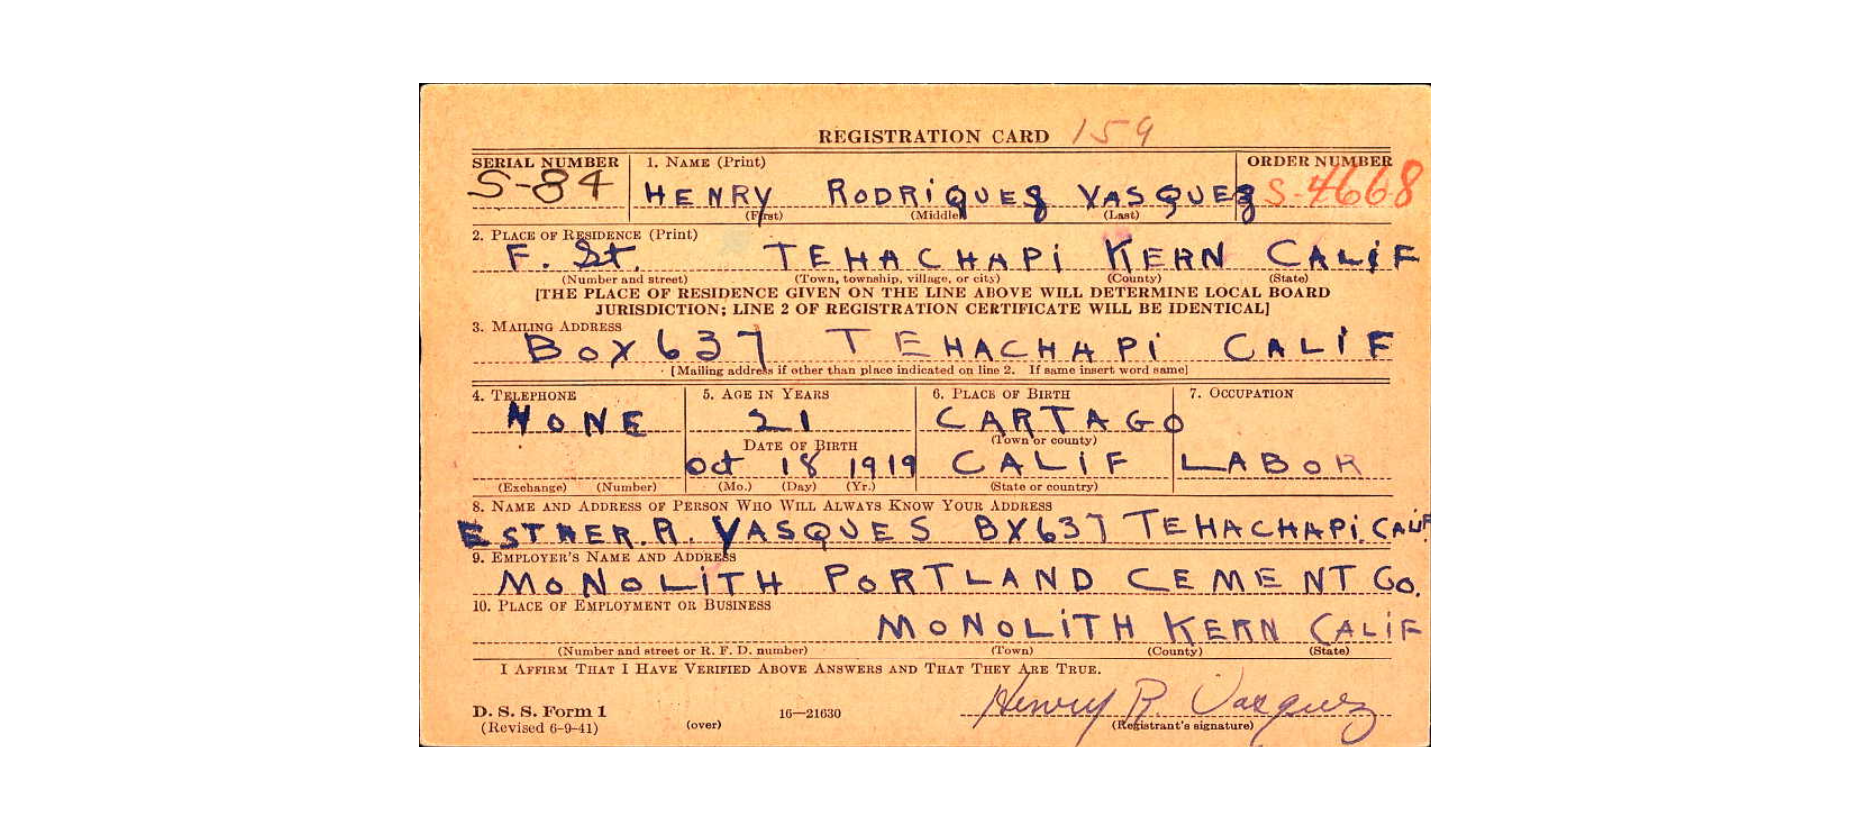 REGISTRATION CARD 159
SERIAL NUMBER 1. NAME (Print) ORDER NUMBER
S-84 HENRY RODRiQUEz VASQUEz S-4668
(First) (Middle) (Last)
2. PLACE OF RESIDENCE (Print)
F. St. TEHACHAPi KERN CALiF
(Number and street) (Town, township, village, or city) (County) (State)
[THE PLACE OF RESIDENCE GIVEN ON THE LINE ABOVE WILL DETERMINE LOCAL BOARD
JURISDICTION; LINE 2 OF REGISTRATION CERTIFICATE WILL BE IDENTICAL]
3. MAILING ADDRESS
BoX 637 TEHACHAPi CALiF
[Mailing address if other than place indicated on line 2. If same insert word same]
4. TELEPHONE 5. AGE IN YEARS 6. PLACE OF BIRTH 7. OCCUPATION
NoNE 21 CARTAGO
DATE OF BIRTH (Town or county)
Oct 18 1919 CALiF LABoR
(Exchange) (Number) (Mo.) (Day) (Yr.) (State or country)
8. NAME AND ADDRESS OF PERSON WHO WILL ALWAYS KNOW YOUR ADDRESS
ESTHER. R. VASQUES BX637 TEHACHAPi. CALiF.
9. EMPLOYER'S NAME AND ADDRESS
MoNoLiTH PoRTLAND CEMENT Co.
10. PLACE OF EMPLOYMENT OR BUSINESS
MoNoLiTH KERN CALiF
(Number and street or R. F. D. number) (Town) (County) (State)
I AFFIRM THAT I HAVE VERIFIED ABOVE ANSWERS AND THAT THEY ARE TRUE.
Henry R. Vasquez
D. S. S. Form 1 16—21630
(Revised 6-9-41) (over) (Registrant's signature)